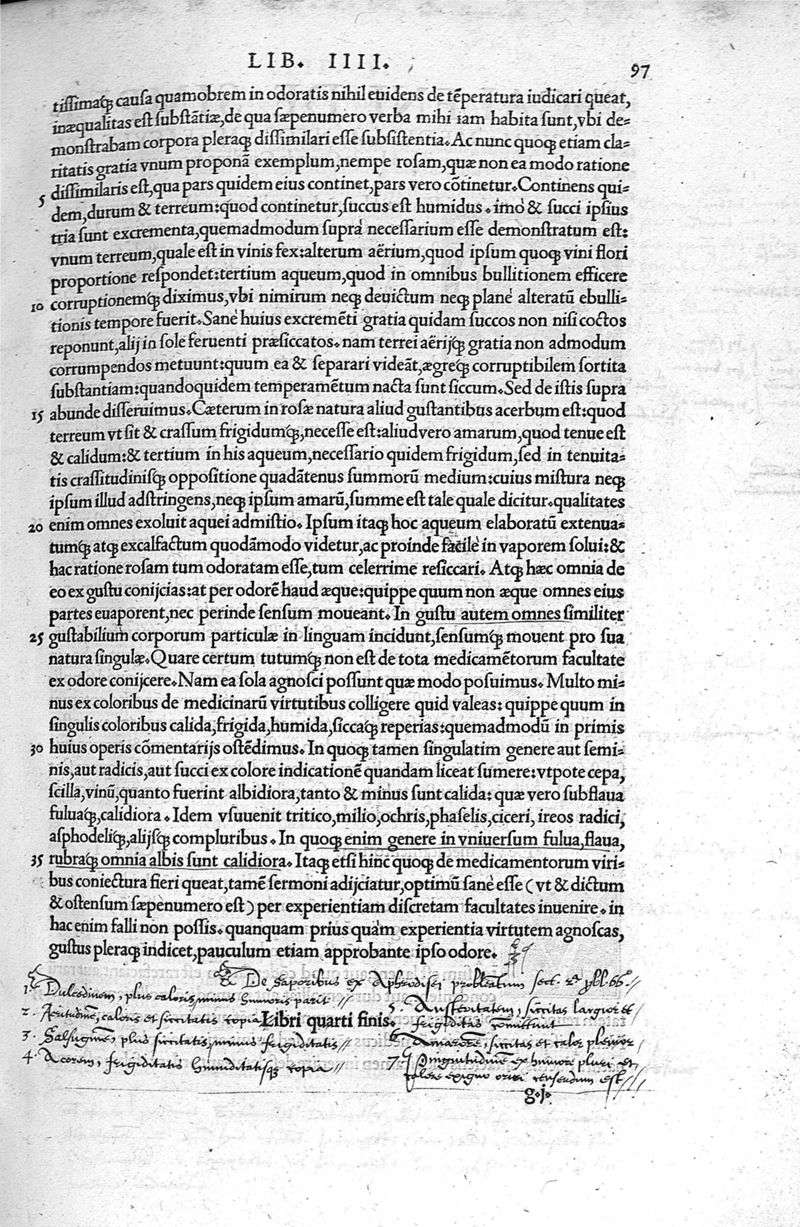 LIB. IIII.
97
tissimaq; causa quamobrem in odoratis nihil euidens de tēperatura iudicari queat,
inæqualitas est substātiæ, de qua sæpenumero verba mihi iam habita sunt, vbi de=
monstrabam corpora pleraq; dissimilari esse subsistentia. Ac nunc quoq; etiam cla=
ritatis gratia vnum proponā exemplum, nempe rosam, quæ non ea modo ratione
5 dissimilaris est, qua pars quidem eius continet, pars vero cōtinetur. Continens qui=
dem, durum & terreum: quod continetur, succus est humidus. imò & succi ipsius
tria sunt excrementa, quemadmodum suprà necessarium esse demonstratum est:
vnum terreum, quale est in vinis fex: alterum aërium, quod ipsum quoq; vini flori
proportione respondet: tertium aqueum, quod in omnibus bullitionem efficere
10 corruptionemq; diximus, vbi nimirum neq; deuictum neq; planè alteratū ebulli=
tionis tempore fuerit. Sanè huius excremēti gratia quidam succos non nisi coctos
reponunt, alij in sole feruenti præsiccatos. nam terrei aërijq; gratia non admodum
corrumpendos metuunt: quum ea & separari videāt, ægreq; corruptibilem sortita
substantiam: quandoquidem temperamētum nacta sunt siccum. Sed de istis supra
15 abunde disseruimus. Cæterum in rosæ natura aliud gustantibus acerbum est: quod
terreum vt sit & crassum frigidumq;, necesse est: aliud vero amarum, quod tenue est
& calidum: & tertium in his aqueum, necessario quidem frigidum, sed in tenuita=
tis crassitudinisq; oppositione quadātenus summorū medium: cuius mistura neq;
ipsum illud adstringens, neq; ipsum amarū, summe est tale quale dicitur. qualitates
20 enim omnes exoluit aquei admistio. Ipsum itaq; hoc aqueum elaboratū extenua=
tumq; atq; excalfactum quodāmodo videtur, ac proinde facilè in vaporem solui: &
hac ratione rosam tum odoratam esse, tum celerrime resiccari. Atq; hæc omnia de
eo ex gustu conijcias: at per odorē haud æque: quippe quum non æque omnes eius
partes euaporent, nec perinde sensum moueant. In gustu autem omnes similiter
25 gustabilium corporum particulæ in linguam incidunt, sensumq; mouent pro sua
natura singulæ. Quare certum tutumq; non est de tota medicamētorum facultate
ex odore conijcere. Nam ea sola agnosci possunt quæ modo posuimus. Multo mi=
nus ex coloribus de medicinarū virtutibus colligere quid valeas: quippe quum in
singulis coloribus calida, frigida, humida, siccaq; reperias: quemadmodū in primis
30 huius operis cōmentarijs ostēdimus. In quoq; tamen singulatim genere aut semi=
nis, aut radicis, aut succi ex colore indicationē quandam liceat sumere: vtpote cepa,
scilla, vinū, quanto fuerint albidiora, tanto & minus sunt calida: quæ vero subflaua
fuluaq;, calidiora. Idem vsuuenit tritico, milio, ochris, phaselis, ciceri, ireos radici,
asphodeliq;, alijsq; compluribus. In quoq; enim genere in vniuersum fulua, flaua,
35 rubraq; omnia albis sunt calidiora. Itaq; etsi hinc quoq; de medicamentorum viri=
bus coniectura fieri queat, tamē sermoni adijciatur, optimū sanè esse (vt & dictum
& ostensum sæpenumero est) per experientiam discretam facultates inuenire. in
hac enim falli non possis. quanquam prius quàm experientia virtutem agnoscas,
gustus pleraq; indicet, pauculum etiam approbante ipso odore.
De saporibus ex Aphrodisei problematum sect.
1. Dulcedinem, plus caloris, minus humoris parit
2. Acritudinē, caloris et siccitatis copia
Libri quarti finis.
3. Salsuginē, plus siccitatis, minus frigiditatis
4. Acorem, frigiditatis humiditatisq; copia
5. Austeritatem, siccitas largior et
frigiditas committunt
6. Amarorē, siccitas et calor plenior
7. Pinguitudinē ex humore pluri et
calore exiguo oriri censendum est
g.j.